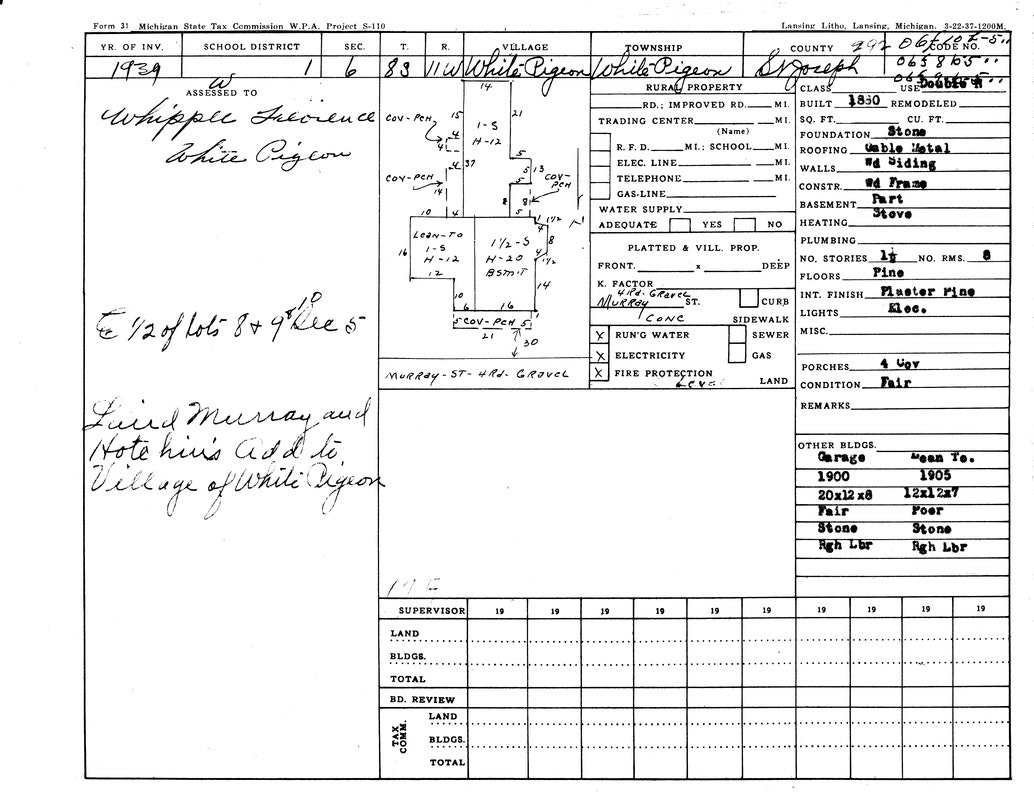 Form 31 Michigan State Tax Commission W.P.A. Project S-110
Lansing Litho, Lansing, Michigan. 3-22-37-1200M.
YR. OF INV. SCHOOL DISTRICT SEC. T. R. VILLAGE TOWNSHIP COUNTY 292 CODE NO.
1939 W 1 6 8S 11W White Pigeon White Pigeon St Joseph 065865
ASSESSED TO
Whipple Florence
White Pigeon
E 1/2 of Lots 8 & 9 Sec 5
Laird Murray and
Hotchin's Add to
Village of White Pigeon
14
COV-PCH 15 21
4 1-S
4 H-12
4 37 5 13
COV-PCH 14 5 COV-PCH
8 8
10 4 5 1 1/2
Lean-To 1 1/2-S 8
16 1-S H-20 4
H-12 BSMT 1 1/2
12 14
10
6 16 1
5 COV-PCH 5
21 30
MURRAY-ST-4RD-GRAVEL
RURAL PROPERTY
RD.; IMPROVED RD. MI.
TRADING CENTER MI.
(Name)
R. F. D. MI.; SCHOOL MI.
ELEC. LINE MI.
TELEPHONE MI.
GAS-LINE
WATER SUPPLY
ADEQUATE YES NO
PLATTED & VILL. PROP.
FRONT. x DEEP
K. FACTOR
4 Rd. Gravel
Murray ST. CURB
Conc SIDEWALK
X RUN'G WATER SEWER
X ELECTRICITY GAS
X FIRE PROTECTION
Level LAND
CLASS USE Double R
BUILT 1880 REMODELED
SQ. FT. CU. FT.
FOUNDATION Stone
ROOFING Gable Metal
WALLS Wd Siding
CONSTR. Wd Frame
BASEMENT Part
HEATING Stove
PLUMBING
NO. STORIES 1½ NO. RMS. 8
FLOORS Pine
INT. FINISH Plaster Pine
LIGHTS Elec.
MISC.
PORCHES 4 Cov
CONDITION Fair
REMARKS
OTHER BLDGS.
Garage Lean To.
1900 1905
20x12x8 12x12x7
Fair Poor
Stone Stone
Rgh Lbr Rgh Lbr
SUPERVISOR 19 19 19 19 19 19 19 19 19 19
LAND
BLDGS.
TOTAL
BD. REVIEW
TAX COMM.
LAND
BLDGS.
TOTAL